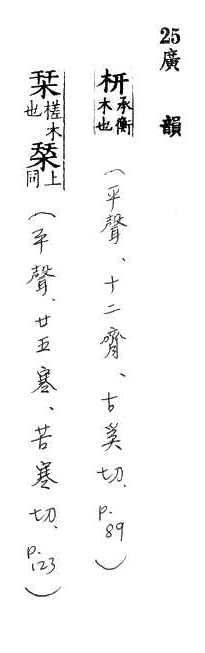 25廣韻
枅承衡木也（平聲、十二齊、古奚切、p.89）
栞槎木也 上同（平聲、廿五寒、苦寒切、p.123）